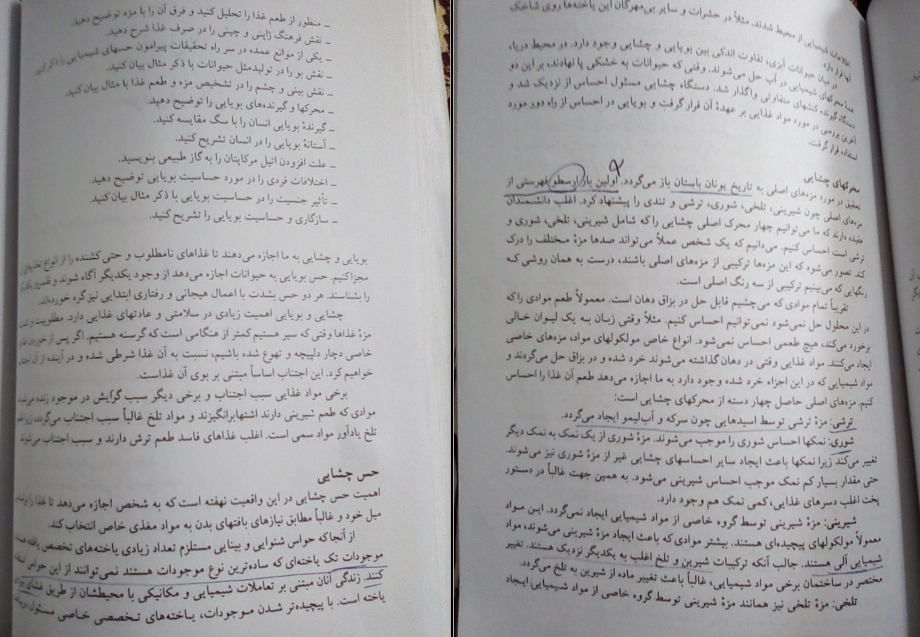 ـ منظور از طعم غذا را تحلیل کنید و فرق آن را با مزه توضیح دهید.
ـ نقش فرهنگ ژاپنی و چینی را در صرف غذا شرح دهید.
ـ یکی از موانع عمده در سر راه تحقیقات پیرامون حسهای شیمیایی را ذکر کنید.
ـ نقش بو را در تولیدمثل حیوانات با ذکر مثال بیان کنید.
ـ نقش بینی و چشم را در تشخیص مزه و طعم غذا با مثال بیان کنید.
ـ محرکها و گیرنده‌های بویایی را توضیح دهید.
ـ گیرندهٔ بویایی انسان را با سگ مقایسه کنید.
ـ آستانهٔ بویایی را در انسان تشریح کنید.
ـ علت افزودن اتیل مرکاپتان را به گاز طبیعی بنویسید.
ـ اختلافات فردی را در مورد حساسیت بویایی توضیح دهید.
ـ تأثیر جنسیت را در حساسیت بویایی با ذکر مثال بیان کنید.
ـ سازگاری و حساسیت بویایی را تشریح کنید.
بویایی و چشایی به ما اجازه می‌دهند تا غذاهای نامطلوب و حتی کشنده را از انواع
مجزا کنیم. حس بویایی به حیوانات اجازه می‌دهد از وجود یکدیگر آگاه شوند و قلمرو
را بشناسند. هر دو حس بشدت با اعمال هیجانی و رفتاری ابتدایی نیز گره خورده‌اند.
چشایی و بویایی اهمیت زیادی در سلامتی و عادتهای غذایی دارد. مطلوبیت و
مزهٔ غذاها وقتی که سیر هستیم کمتر از هنگامی است که گرسنه هستیم. اگر پس از خوردن
خاصی دچار دلپیچه و تهوع شده باشیم، نسبت به آن غذا شرطی شده و در آینده از آن
خواهیم کرد. این اجتناب اساساً مبتنی بر بوی آن غذاست.
برخی مواد غذایی سبب اجتناب و برخی دیگر سبب گرایش در موجود زنده
موادی که طعم شیرینی دارند اشتهابرانگیزند و مواد تلخ غالباً سبب اجتناب می‌گردد، زیرا
تلخ یادآور مواد سمی است. اغلب غذاهای فاسد طعم ترش دارند و سبب اجتناب
حس چشایی
اهمیت حس چشایی در این واقعیت نهفته است که به شخص اجازه می‌دهد تا غذا را
میل خود و غالباً مطابق نیازهای بافتهای بدن به مواد مغذی خاص انتخاب کند.
از آنجا که حواس شنوایی و بینایی مستلزم تعداد زیادی یاخته‌های تخصص یافته
موجودات تک یاخته‌ای که ساده‌ترین نوع موجودات هستند نمی‌توانند از این حواس
کنند. زندگی آنان مبتنی بر تعاملات شیمیایی و مکانیکی با محیطشان از طریق غشای
یافته است. با پیچیده‌تر شدن موجودات، یاخته‌های تخصصی خاصی مسئول
اطلاعات شیمیایی از محیط شدند. مثلاً در حشرات و سایر بی‌مهرگان این یاخته‌ها روی شاخک
آنها قرار دارد.
در میان حیوانات آبزی، تفاوت اندکی بین بویایی و چشایی وجود دارد. در محیط دریا،
همهٔ محرکهای شیمیایی در آب حل می‌شوند. وقتی که حیوانات به خشکی پا نهادند، بر این دو
دستگاه گیرنده کنشهای متفاوتی واگذار شد. دستگاه چشایی مسئول احساس از نزدیک شد و
آخرین بررسی در مورد مواد غذایی بر عهدهٔ آن قرار گرفت و بویایی در احساس از راه دور مورد
استفاده قرار گرفت.
محرکهای چشایی
تحقیق در مورد مزه‌های اصلی به تاریخ یونان باستان باز می‌گردد. اولین بار ارسطو فهرستی از
مزه‌های اصلی چون شیرینی، تلخی، شوری، ترشی و تندی را پیشنهاد کرد. اغلب دانشمندان
عقیده دارند که ما می‌توانیم چهار محرک اصلی چشایی را که شامل شیرینی، تلخی، شوری و
ترشی است احساس کنیم. می‌دانیم که یک شخص عملاً می‌تواند صدها مزهٔ مختلف را درک
کند. تصور می‌شود که این مزه‌ها ترکیبی از مزه‌های اصلی باشند، درست به همان روشی که
رنگهایی که می‌بینیم ترکیبی از سه رنگ اصلی است.
تقریباً تمام موادی که می‌چشیم قابل حل در بزاق دهان است. معمولاً طعم موادی را که
در این محلول حل نمی‌شود نمی‌توانیم احساس کنیم. مثلاً وقتی زبان به یک لیوان خالی
برخورد می‌کند، هیچ طعمی احساس نمی‌شود. انواع خاص مولکولهای مواد، مزه‌های خاصی
ایجاد می‌کنند. مواد غذایی وقتی در دهان گذاشته می‌شوند خرد شده و در بزاق حل می‌گردند و
مواد شیمیایی که در این اجزاء خرد شده وجود دارد به ما اجازه می‌دهد طعم آن غذا را احساس
کنیم. مزه‌های اصلی حاصل چهار دسته از محرکهای چشایی است:
ترشی: مزهٔ ترشی توسط اسیدهایی چون سرکه و آب‌لیمو ایجاد می‌گردد.
شوری: نمکها احساس شوری را موجب می‌شوند. مزهٔ شوری از یک نمک به نمک دیگر
تغییر می‌کند زیرا نمکها باعث ایجاد سایر احساسهای چشایی غیر از مزهٔ شوری نیز می‌شوند.
حتی مقدار بسیار کم نمک موجب احساس شیرینی می‌شود. به همین جهت غالباً در دستور
پخت اغلب دسرهای غذایی، کمی نمک هم وجود دارد.
شیرینی: مزهٔ شیرینی توسط گروه خاصی از مواد شیمیایی ایجاد نمی‌گردد. این مواد
معمولاً مولکولهای پیچیده‌ای هستند. بیشتر موادی که باعث ایجاد مزهٔ شیرینی می‌شوند، مواد
شیمیایی آلی هستند. جالب آنکه ترکیبات شیرین و تلخ اغلب به یکدیگر نزدیک هستند. تغییر
مختصر در ساختمان برخی مواد شیمیایی، غالباً باعث تغییر ماده از شیرین به تلخ می‌گردد.
تلخی: مزهٔ تلخی نیز همانند مزهٔ شیرینی توسط گروه خاصی از مواد شیمیایی، ایجاد